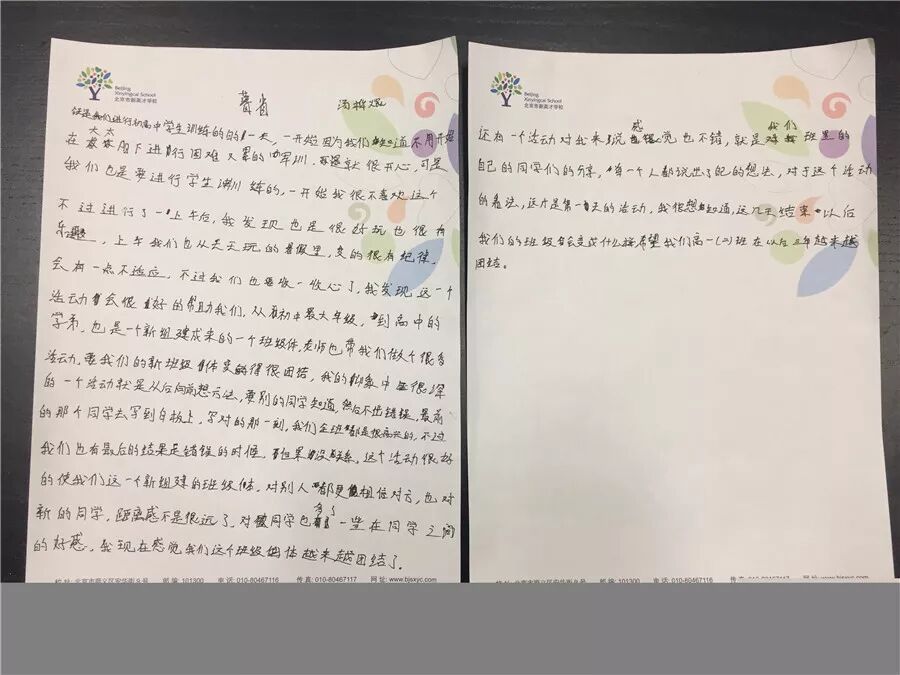 Beijing
Xinyingcai School
北京市新英才学校
今天是我们进行初高中学生训练的的一天，一开始因为我们知道不用开始
在太太阳下进行困难又累的军训，就很开心，可是
我们也是要进行学生训练的，一开始我很不喜欢这个
不过进行了一上午后，我发现也是很好玩也很有
乐趣，上午我们也从天天玩的暑假里，变的很有纪律，
会有一点不适应，不过我们也要收一收心了，我发现这一个
活动会很好的帮助我们，从初中最大年级，到高中的
学弟，也是一个新组建成来的一个班级体，老师也带我们做个很多
活动，要我们的新班级体变得很团结，我的印象中很深
的一个活动就是从后向前想方法，要别的同学知道，然后不出错误，最前
的那个同学去写到白板上，写对的那一刻，我们全班都是很高兴的，不过
我们也有最后的结果是错误的时候，但没关系，这个活动很好
的使我们这一个新组建的班级体，对别人都更相信对方，也对
新的同学，距离感不是很远了，对同学也有了一些在同学之间
的好感，我现在感觉我们这个班级团体越来越团结了。
北京市顺义区安华街9号 邮编:101300 电话:010-80467116 传真:010-80467117 网址:www.bjsxyc.com
Beijing
Xinyingcai School
北京市新英才学校
还有一个活动对我来说感觉也不错，就是我们班里的
自己的同学们的分享，每一个人都说出了自己的想法，对于这个活动
的看法，这才是第一天的活动，我很想知道，这几天结束以后
我们的班级会变成什么样，希望我们高一(二)班在以后三年越来越
团结。
北京市顺义区安华街9号 邮编:101300 电话:010-80467116 传真:010-80467117 网址:www.bjsxyc